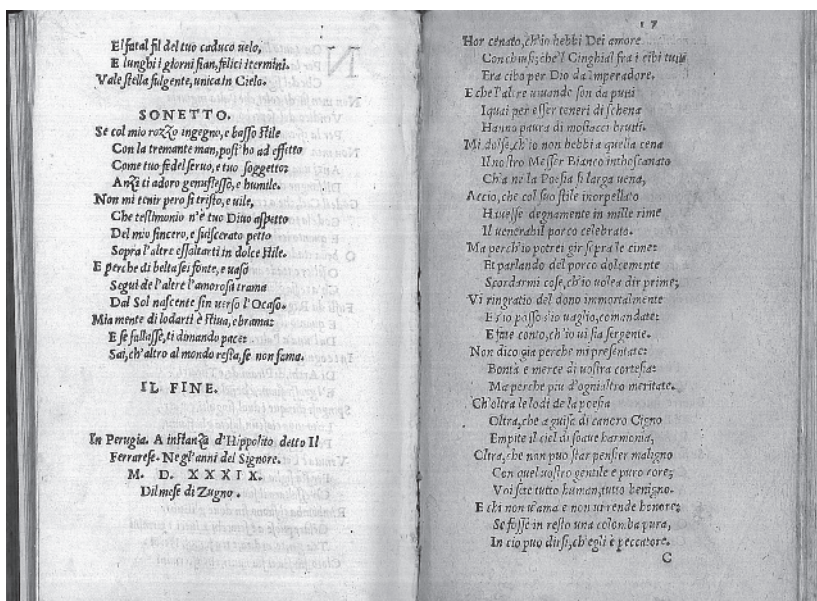 El fatal fil del tuo caduco uelo,
E lunghi i giorni sian, felici i termini.
Vale stella fulgente, unica in Cielo.
SONETTO.
Se col mio rozzo ingegno, e basso stile
Con la tremante man, post'ho ad effetto
Come tuo fedel seruo, e tuo soggetto:
Anzi ti adoro genuflesso, e humile.
Non mi tenir pero si tristo, e uile,
Che testimonio n'è tuo Diuo aspetto
Del mio sincero, e suiscerato petto
Sopra l'altre essaltarti in dolce stile.
E perche di belta sei fonte, e uaso
Segui de l'altere l'amorosa trama
Dal Sol nascente fin uerso l'Ocaso.
Mia mente di lodarti è stiua, e brama:
E se fallasse, ti dimando pace:
Sai, ch'altro al mondo resta, se non fama.
IL FINE.
In Perugia. A instanza d'Hippolito detto Il
Ferrarese. Negl'anni del Signore.
M. D. XXXIX.
Dil mese di Zugno.
17
Hor cenato, ch'io hebbi Dei amore
Conchiusi; che'l Cinghial fra i cibi tutti
Era cibo per Dio da Imperadore.
E che l'altre uiuande son da putti
I quai per esser teneri di schena
Hanno paura di mostacci brutti.
Mi dolse, ch'io non hebbi a quella cena
Il nostro Messer Bianco inthoscanato
Ch'a ne la Poesia si larga uena,
Accio, che col suo stile inorpellato
Hauesse degnamente in mille rime
Il uenerabil porco celebrato.
Ma perch'io potrei gir sopra le cime:
Et parlando del porco dolcemente
Scordarmi cose, ch'io uolea dir prime;
Vi ringratio del dono immortalmente
E s'io posso s'io uaglio, comandate:
E fate conto, ch'io ui sia sergente.
Non dico gia perche mi presentate:
Bonta e merce di uostra cortesia:
Ma perche piu d'ogni altro meritate.
Ch'oltra le lodi de la poesia
Oltra, che a guisa di canoro Cigno
Empite il ciel di soaue harmonia,
Oltra, che non puo star pensier maligno
Con quel uostro gentile e puro core;
Voi sete tutto human, tutto benigno.
E chi non u'ama e non ui rende honore;
Se fosse in resto una colomba pura,
In cio puo dirsi, ch'egli è peccatore.
C